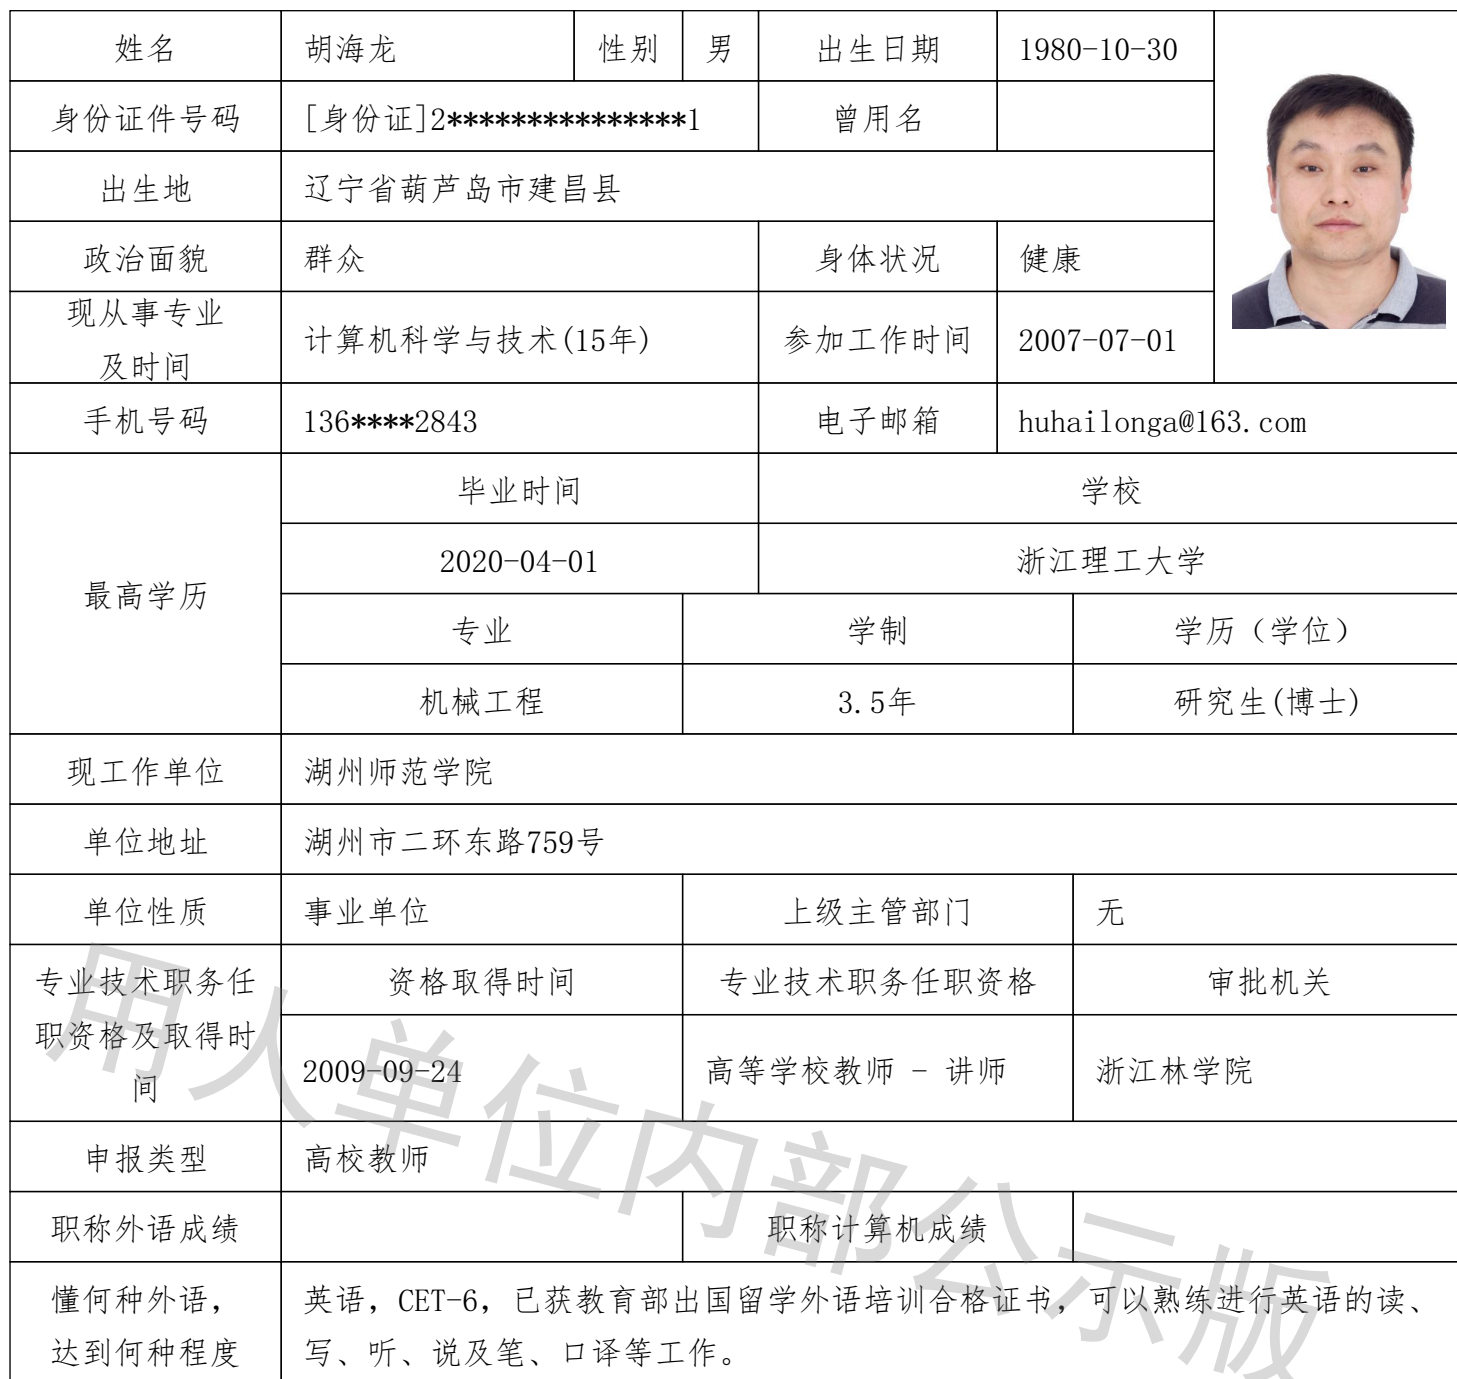 姓名 胡海龙 性别 男 出生日期 1980-10-30
身份证件号码 [身份证]2***************1 曾用名
出生地 辽宁省葫芦岛市建昌县
政治面貌 群众 身体状况 健康
现从事专业
及时间 计算机科学与技术(15年) 参加工作时间 2007-07-01
手机号码 136****2843 电子邮箱 huhailonga@163.com
最高学历
毕业时间 学校
2020-04-01 浙江理工大学
专业 学制 学历（学位）
机械工程 3.5年 研究生(博士)
现工作单位 湖州师范学院
单位地址 湖州市二环东路759号
单位性质 事业单位 上级主管部门 无
专业技术职务任
职资格及取得时
间
资格取得时间 专业技术职务任职资格 审批机关
2009-09-24 高等学校教师 - 讲师 浙江林学院
申报类型 高校教师
职称外语成绩 职称计算机成绩
懂何种外语，
达到何种程度
英语，CET-6，已获教育部出国留学外语培训合格证书，可以熟练进行英语的读、
写、听、说及笔、口译等工作。
用人单位内部公示版